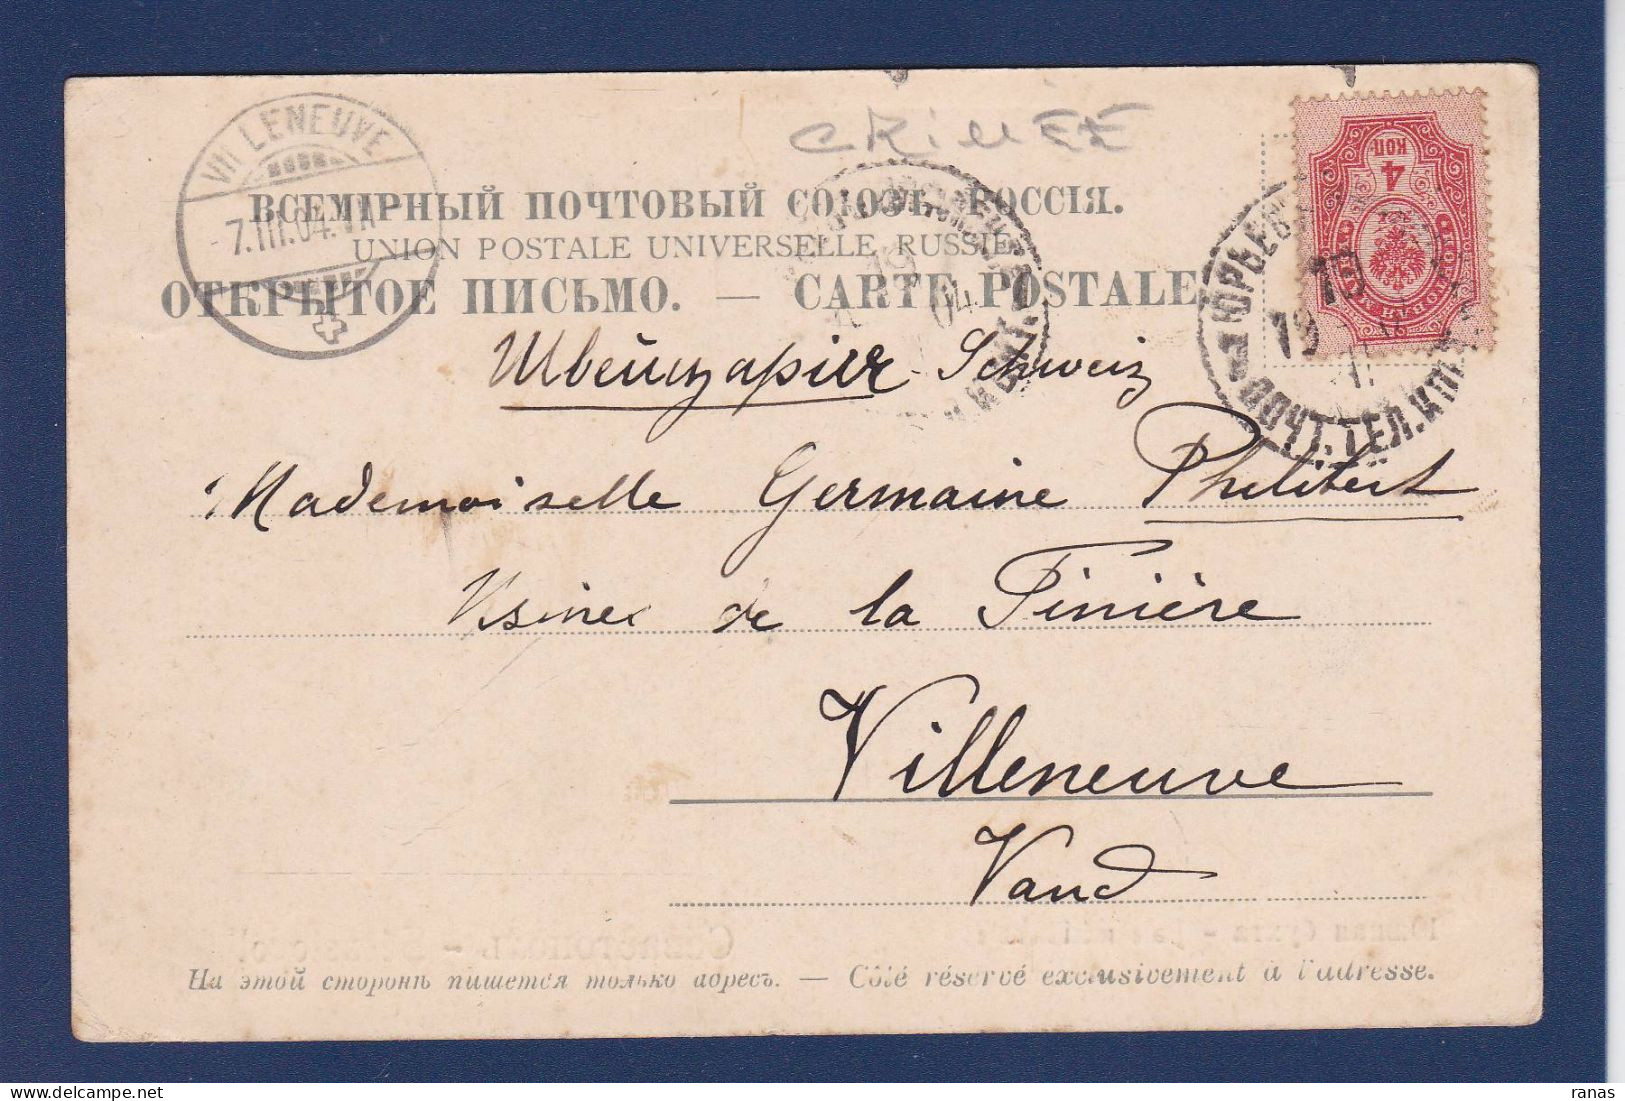 CRIMÉE
VILLENEUVE
7.III.04.VII
4
КОП
ВСЕМІРНЫЙ ПОЧТОВЫЙ СОЮЗЪ. РОССІЯ.
UNION POSTALE UNIVERSELLE. RUSSIE.
ОТКРЫТОЕ ПИСЬМО. — CARTE POSTALE
19
ПОЧТ. ТЕЛ.
Швейцарія Schweiz
Mademoiselle Germaine Philibert
Usines de la Tinière
Villeneuve
Vaud
На этой сторонѣ пишется только адресъ. — Côté réservé exclusivement à l'adresse.
ranas